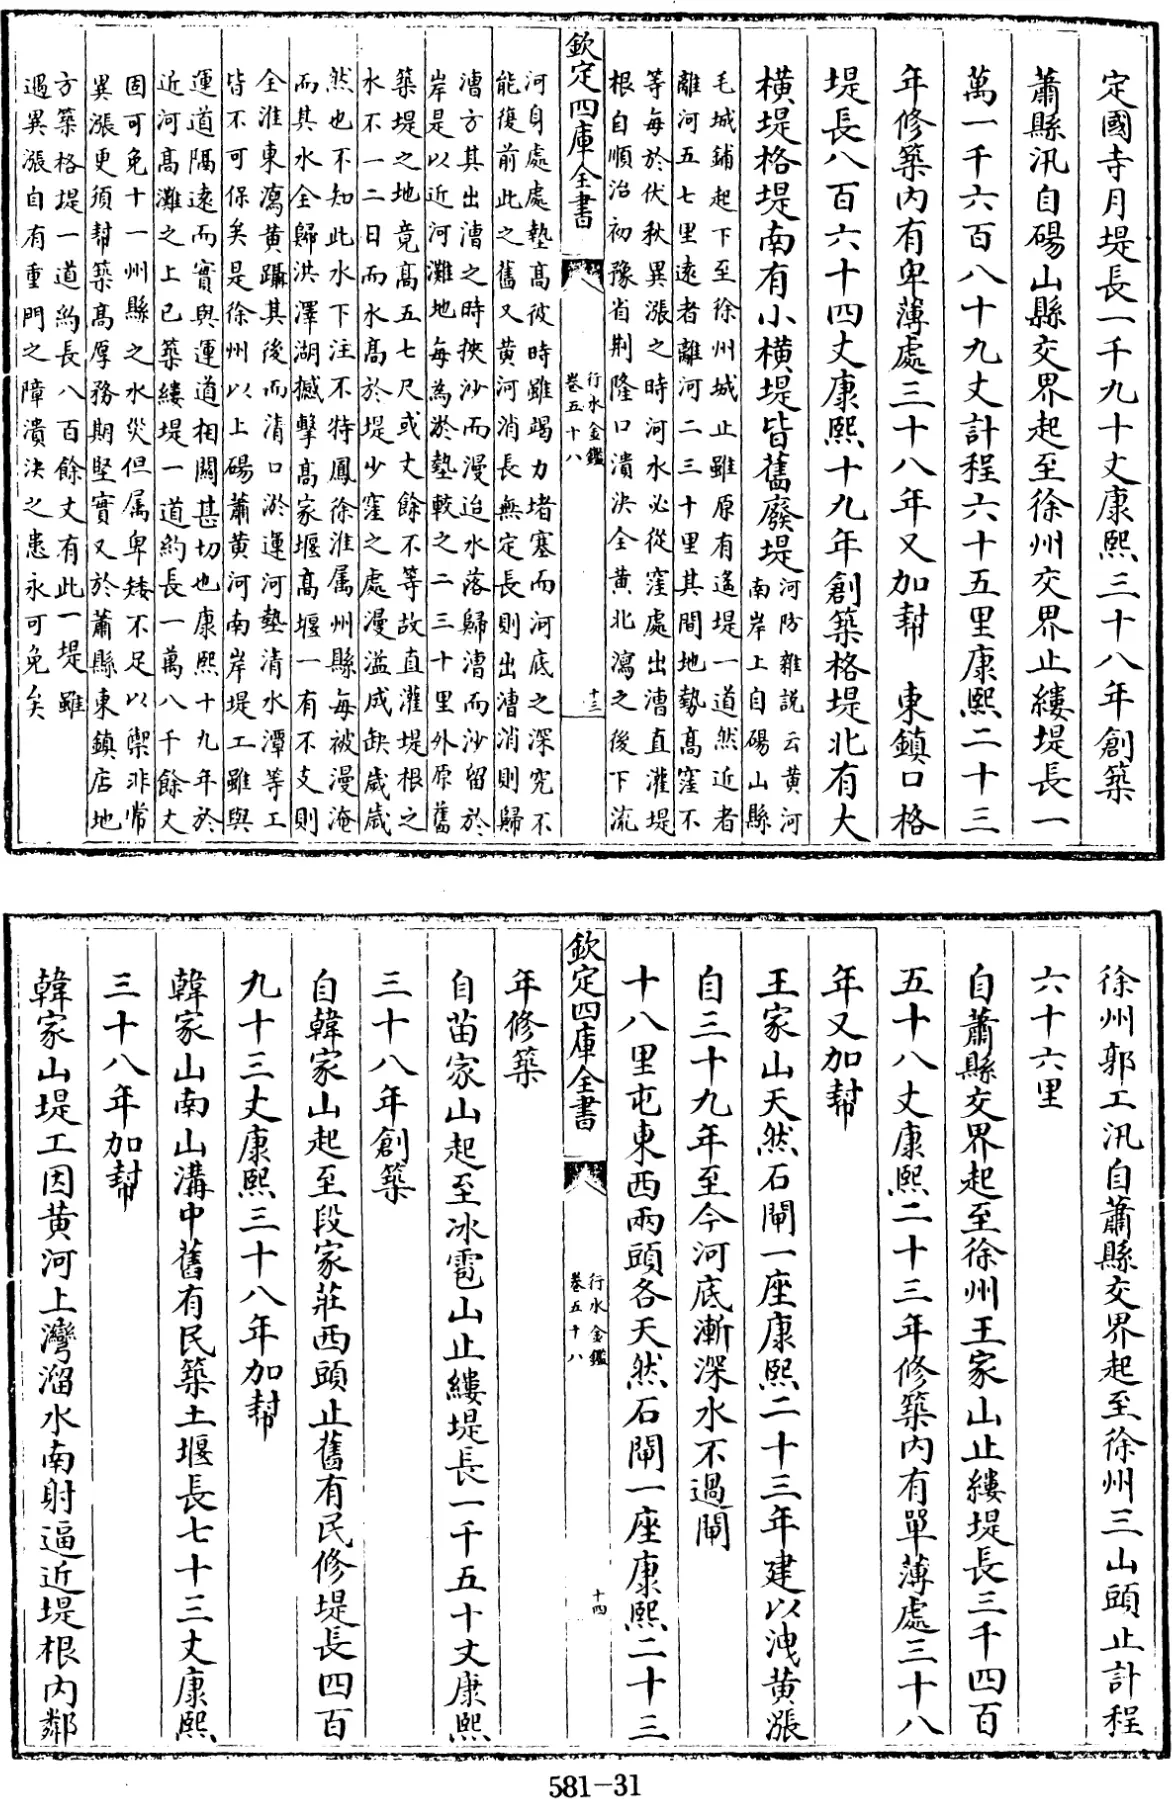 定國寺月堤長一千九十丈康熙三十八年創築
蕭縣汛自碭山縣交界起至徐州交界止縷堤長一
萬一千六百八十九丈計程六十五里康熙二十三
年修築内有卑薄處三十八年又加幇　東鎮口格
堤長八百六十四丈康熙十九年創築格堤北有大
橫堤格堤南有小橫堤皆舊廢堤
河防雜説云黄河
南岸上自碭山縣
毛城鋪起下至徐州城止雖原有遙堤一道然近者
離河五七里遠者離河二三十里其間地勢高窪不
等每於伏秋異漲之時河水必從窪處出漕直灌堤
根自順治初豫省荆隆口潰決全黄北瀉之後下流
欽定四庫全書
行水金鑑
卷五十八
十三
河身處處墊高彼時雖竭力堵塞而河底之深究不
能復前此之舊又黄河消長無定長則出漕消則歸
漕方其出漕之時挾沙而漫迨水落歸漕而沙留於
岸是以近河灘地每為淤墊較之二三十里外原舊
築堤之地竟高五七尺或丈餘不等故直灌堤根之
水不一二日而水高於堤少窪之處漫溢成缺歲歲
然也不知此水下注不特鳳徐淮属州縣每被漫淹
而其水全歸洪澤湖撼擊高家堰高堰一有不支則
全淮東瀉黄躡其後而清口淤運河墊清水潭等工
皆不可保矣是徐州以上碭蕭黄河南岸堤工雖與
運道隔遠而實與運道相關甚切也康熙十九年於
近河高灘之上已築縷堤一道約長一萬八千餘丈
固可免十一州縣之水災但属卑矮不足以禦非常
異漲更須幇築高厚務期堅實又於蕭縣東鎮店地
方築格堤一道約長八百餘丈有此一堤雖
遇異漲自有重門之障潰決之患永可免矣
徐州郭工汛自蕭縣交界起至徐州三山頭止計程
六十六里
自蕭縣交界起至徐州王家山止縷堤長三千四百
五十八丈康熙二十三年修築内有單薄處三十八
年又加幇
王家山天然石閘一座康熙二十三年建以洩黄漲
自三十九年至今河底漸深水不過閘
十八里屯東西兩頭各天然石閘一座康熙二十三
欽定四庫全書
行水金鑑
卷五十八
十四
年修築
自苗家山起至冰雹山止縷堤長一千五十丈康熙
三十八年創築
自韓家山起至段家莊西頭止舊有民修堤長四百
九十三丈康熙三十八年加幇
韓家山南山溝中舊有民築土堰長七十三丈康熙
三十八年加幇
韓家山堤工因黄河上灣溜水南射逼近堤根内鄰
581-31